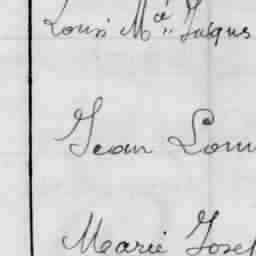 Louis Mce Jacques
Jean Lou
Marie Josep